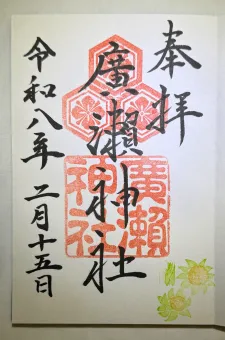 奉拝
廣瀬神社
令和八年二月十五日
廣瀬
神社